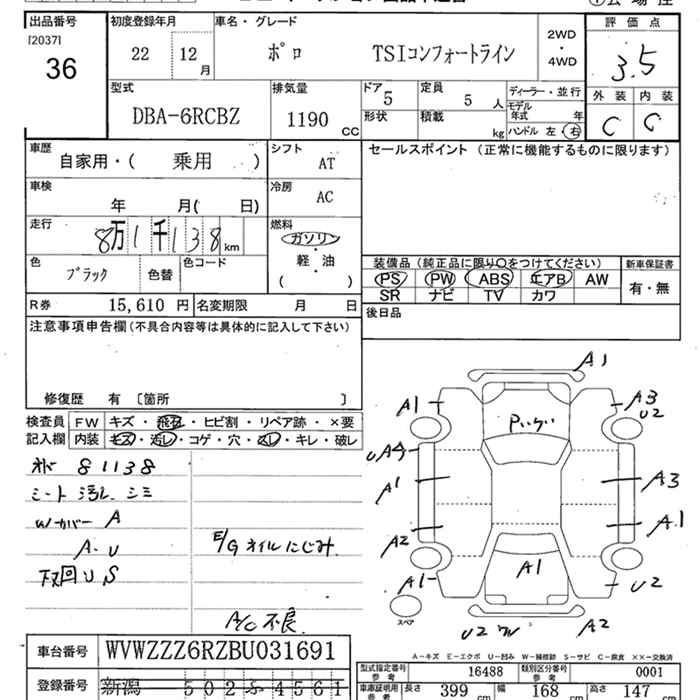 出品番号 初度登録年月 車名・グレード 評価点
[2037]
36 22 12月 ポロ TSIコンフォートライン 2WD・4WD 3.5
型式 排気量 ドア 5 定員 5人 ディーラー・並行 外装 内装
DBA-6RCBZ 1190cc 形状 積載 kg モデル年式 年 ハンドル 左・右 C C
車歴 自家用・( 乗用 ) シフト AT セールスポイント (正常に機能するものに限ります)
車検 年 月( 日) 冷房 AC
走行 8万1千138km 燃料 ガソリン
軽・油
( )
色 ブラック 色替 色コード
装備品 (純正品に限り○をつけてください) 新車保証書
PS PW ABS エアB AW 有・無
SR ナビ TV カワ
R券 15,610円 名変期限 月 日 後日品
注意事項申告欄(不具合内容等は具体的に記入して下さい)
修復歴 有 [箇所 ]
検査員記入欄 FW キズ・飛石・ヒビ割・リペア跡・×要
内装 キズ・汚レ・コゲ・穴・スレ・キレ・破レ
81138
シート 汚レ シミ
Wカバー A
A・U
下回 U S
E/G オイルにじみ
A/C 不良
A1
A1 A3
U2
A1 A3
A2 A1
A1 A1 U2
スペア
U2 A2
A-キズ E-エクボ U-凹み W-補修跡 S-サビ C-腐食 ××-交換済
車台番号 WVWZZZ6RZBU031691
型式指定番号 参考 16488 類別区分番号 参考 0001
登録番号 新潟 502 ふ 4561
車庫証明用 参考 長さ 399cm 幅 168cm 高さ 147cm